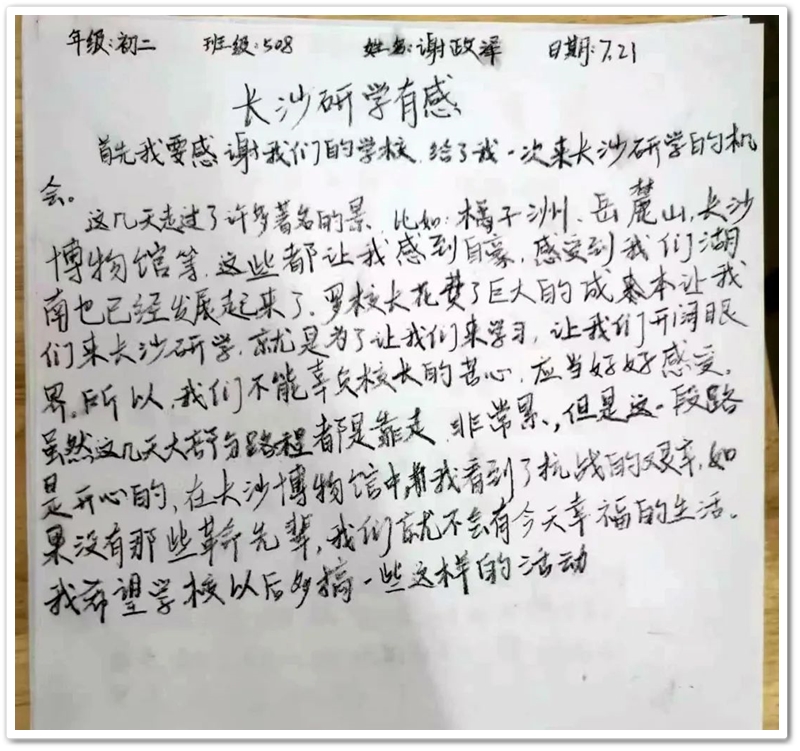 年级:初二 班级:508 姓名:谢政译 日期:7.21
长沙研学有感
首先我要感谢我们的学校,给了我一次来长沙研学的机
会。
这几天走过了许多著名的景,比如:橘子洲、岳麓山,长沙
博物馆等,这些都让我感到自豪,感受到我们湖
南也已经发展起来了。罗校长花费了巨大的成本让我
们来长沙研学,就是为了让我们来学习,让我们开阔眼
界。所以,我们不能辜负校长的苦心,应当好好感受。
虽然这几天大部分路程都是靠走,非常累,但是这一段路
是开心的,在长沙博物馆中我看到了抗战的艰辛,如
果没有那些革命先辈,我们就不会有今天幸福的生活。
我希望学校以后多搞一些这样的活动